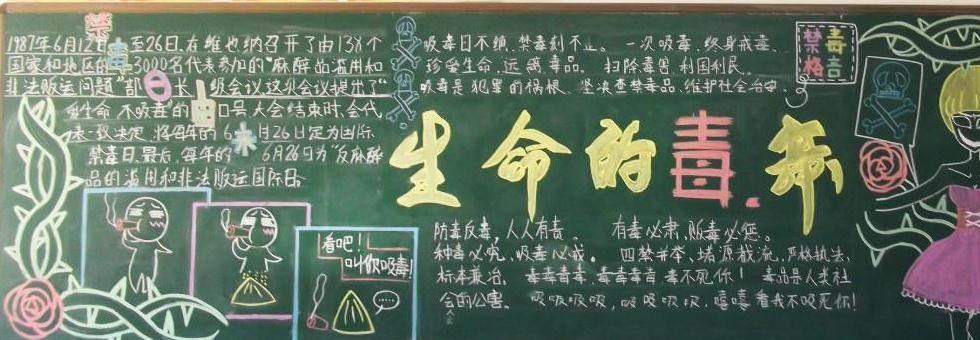 禁
毒
日
1987年6月12日至26日,在维也纳召开了由138个
国家和地区的3000名代表参加的"麻醉品滥用和
非法贩运问题"部长级会议这次会议提出了
爱生命 不吸毒"的口号,大会结束时,会代
表一致决定,将每年的6月26日定为国际
禁毒日.最后,每年的6月26日为"反麻醉
品的滥用和非法贩运国际日。
吸毒日不绝,禁毒刻不止。 一次吸毒,终身戒毒、
珍爱生命,远离毒品。 扫除毒害,利国利民。
吸毒是犯罪的祸根、坚决查禁毒品,维护社会治安。
禁毒
格言
生命的毒.
看吧!
叫你吸毒!
防毒反毒,人人有责。 有毒必肃,贩毒必惩。
种毒必究,吸毒必戒。 四禁并举,堵源截流,严格执法,
标本兼治。 毒毒毒毒,毒毒毒毒,毒不死你! 毒品是人类社
会的公害。 吸吸吸吸,吸吸吸吸,嘻嘻看我不吸死你!